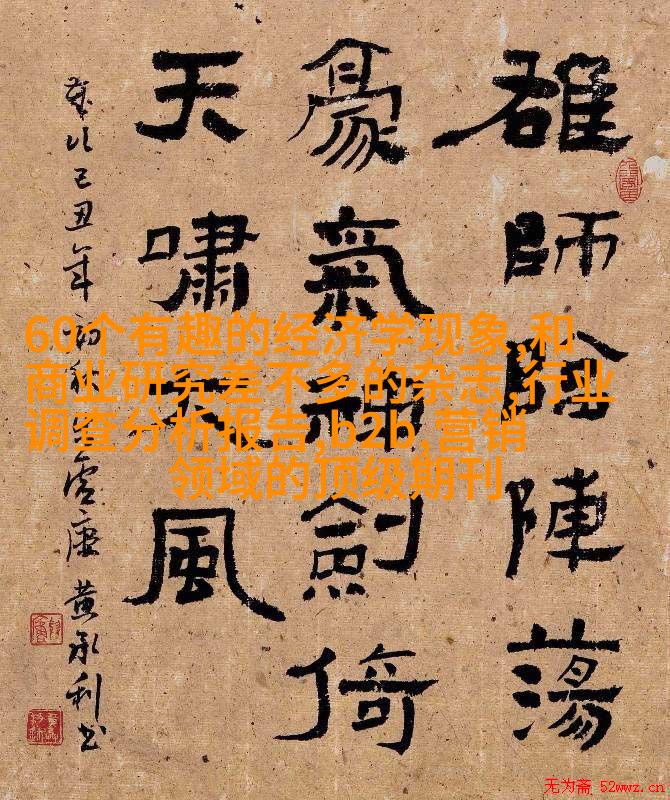 雄師險陣蕩
豪氣神劍倚
天嘯風
歲次己丑年初秋
黄承利书
60个有趣的经济学现象,和
商业研究差不多的杂志,行业
调查分析报告,b2b,营销
领域的顶级期刊
无为斋 52wwz.cn